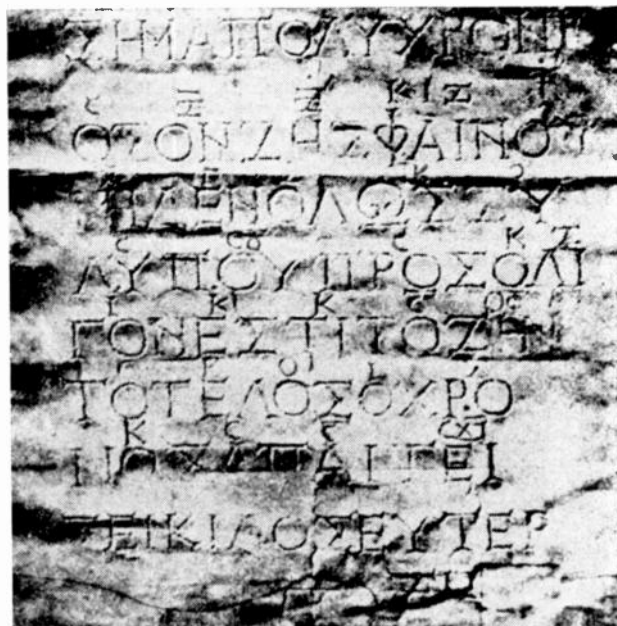 ΣΗΜΑΠΟΛΥΧΡΟΝΙ
C Ζ Ζ ΚΙΖ Ι
ΟΣΟΝΖΗΣΦΑΙΝΟΥ
ΜΗΔΕΝΟΛΩΣΣΥ
ΛΥΠΟΥΠΡΟΣΟΛΙ
ΓΟΝΕΣΤΙΤΟΖΗΝ
ΤΟΤΕΛΟΣΟΧΡΟ
Κ C C
ΝΟΣΑΠΑΙΤΕΙ
ΣΕΙΚΙΛΟΣΕΥΤΕΡ